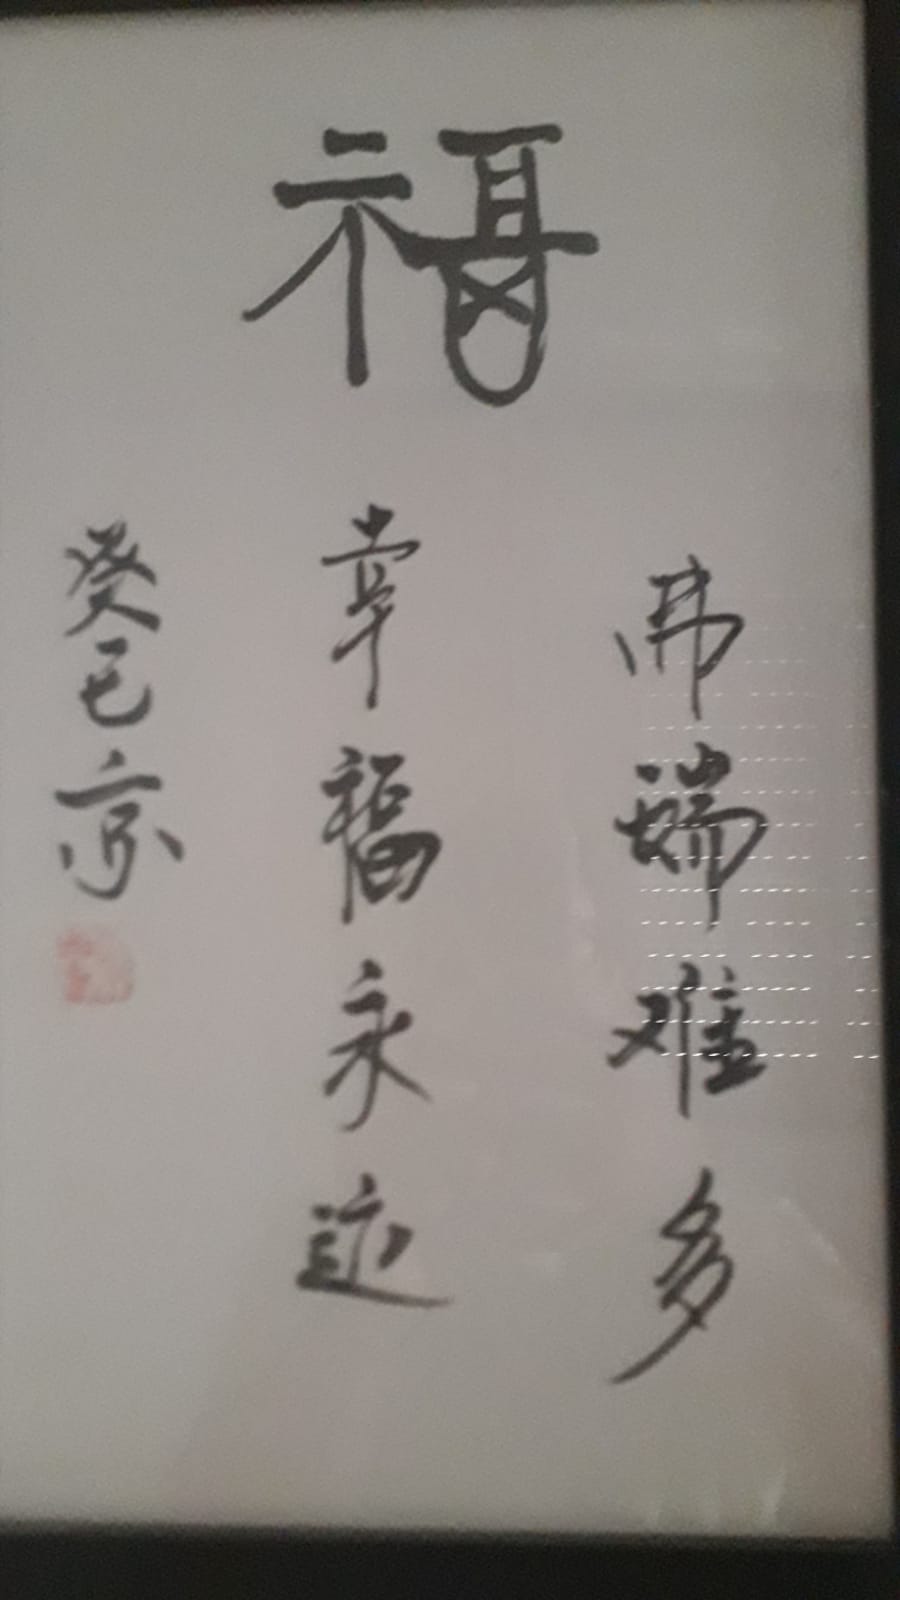 福
弗瑞难多
幸福永远
癸巳京